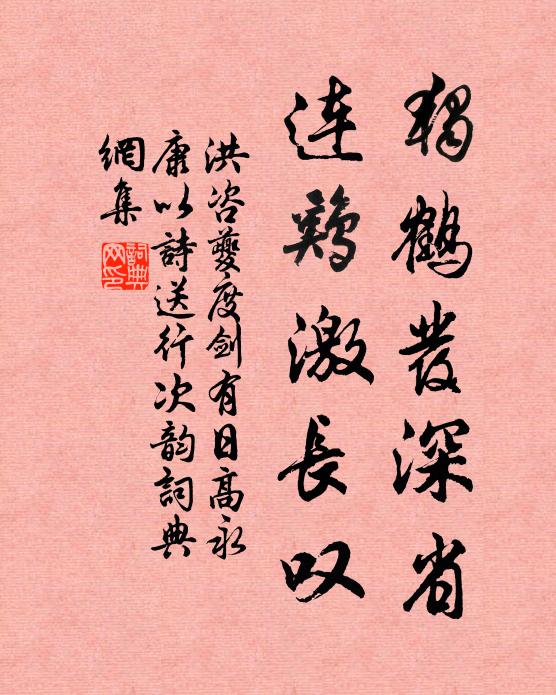 獨鶴發深省
連鷄激長叹
洪咨夔度劍有日高永
康以詩送行次韵詞典
網集
詞典網印